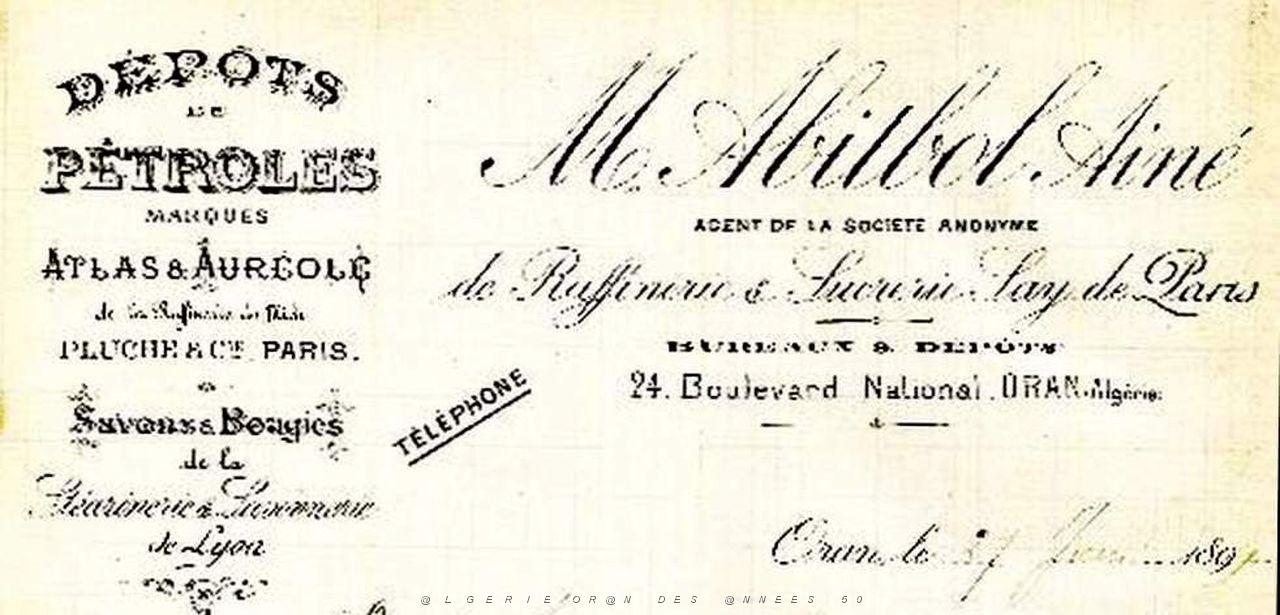 DÉPÔTS
DE
PÉTROLES
MARQUES
ATLAS & AURÉOLE
de la Raffinerie du Midi
PLUCHE & Cie. PARIS.
Savons & Bougies
de la
Stéarinerie & Savonnerie
de Lyon
TÉLÉPHONE
M. Abitbol Ainé
AGENT DE LA SOCIÉTÉ ANONYME
de Raffinerie & Sucrerie Say de Paris
BUREAUX & DEPÔTS
24. Boulevard National. ORAN. Algérie.
Oran, le 27 189
@LGERIE OR@N DES @NNEES 50